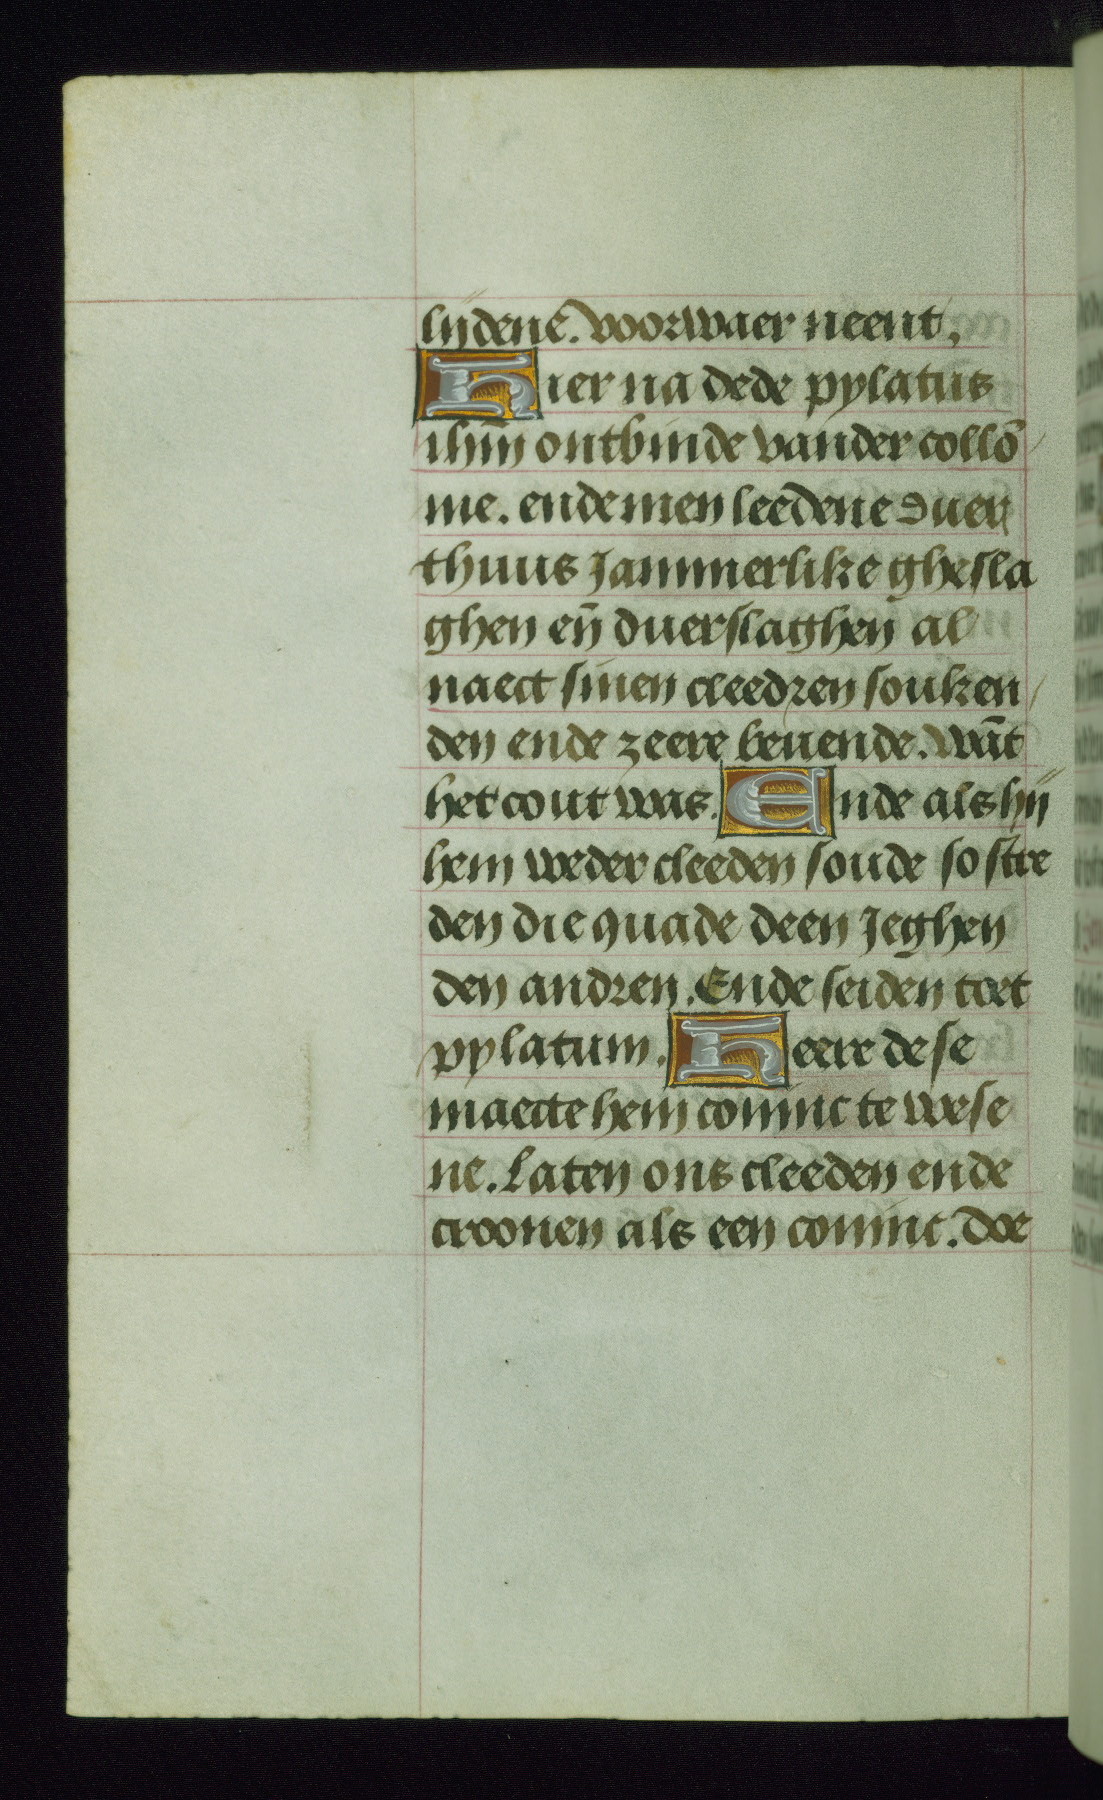 lijdenē. voorwaer neent,
Hier na dede pylatus
ihm̄ ontbinde vander collō
me. ende men leedene duer
thuus Jammerlike ghesla
ghen eñ duerslaghen al
naect sinen cleedren souken
den ende zeere beuende. wāt
het cout was. Ende als hij
hem weder cleeden soude so stre
den die quade deen Jeghen
den andren. Ende seiden toet
pylatum. Heere dese
maecte hem coninc te wese
ne. Laten ons cleeden ende
croonen als een coninc. doe